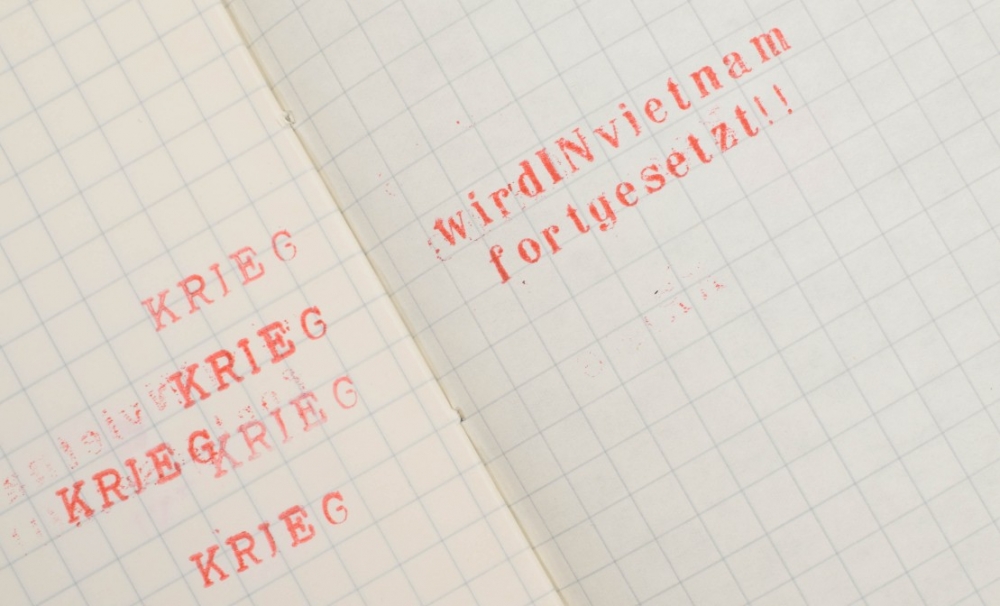 KRIEG
KRIEG
KRIEG
KRIEG
KRIEG
wirdINvietnam
fortgesetzt!!